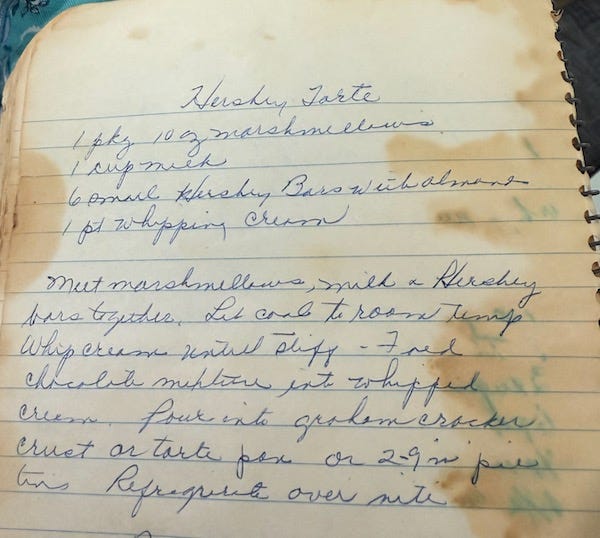 Hershey Tarte
1 pkg 10 oz marshmellows
1 cup milk
6 small Hershey Bars with almond
1 pt whipping cream
Melt marshmellows, milk & Hershey
bars together. Let cool to room temp
Whip cream until stiff - Fold
chocolate mixture into whipped
cream. Pour into graham cracker
crust or tarte pan or 2-9 in pie
tins Refrigerate over nite